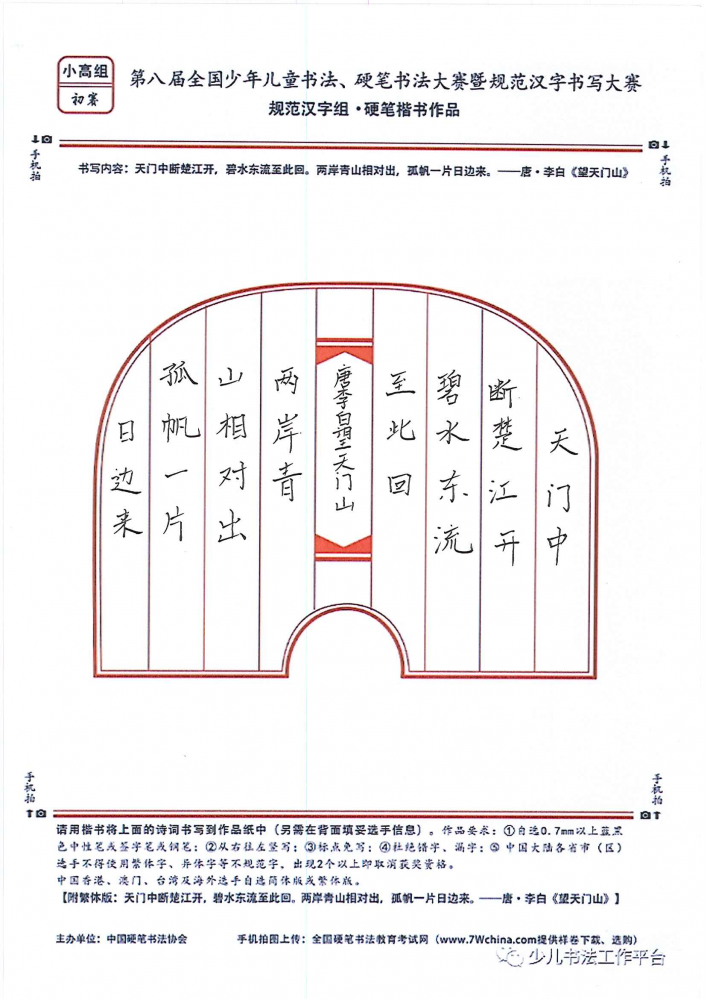 小高组
初赛
第八届全国少年儿童书法、硬笔书法大赛暨规范汉字书写大赛
规范汉字组·硬笔楷书作品
手机拍
手机拍
书写内容：天门中断楚江开，碧水东流至此回。两岸青山相对出，孤帆一片日边来。——唐·李白《望天门山》
天门中
断楚江开
碧水东流
至此回
唐李白望天门山
两岸青
山相对出
孤帆一片
日边来
手机拍
手机拍
请用楷书将上面的诗词书写到作品纸中（另需在背面填妥选手信息）。作品要求：①自选0.7mm以上蓝黑
色中性笔或签字笔或钢笔；②从右往左竖写；③标点免写；④杜绝错字、漏字；⑤ 中国大陆各省市（区）
选手不得使用繁体字、异体字等不规范字，出现2个以上即取消获奖资格。
中国香港、澳门、台湾及海外选手自选简体版或繁体版。
【附繁体版：天门中断楚江开，碧水东流至此回。两岸青山相对出，孤帆一片日边来。——唐·李白《望天门山》】
主办单位：中国硬笔书法协会
手机拍图上传：全国硬笔书法教育考试网（www.7Wchina.com提供样卷下载、选购）
少儿书法工作平台